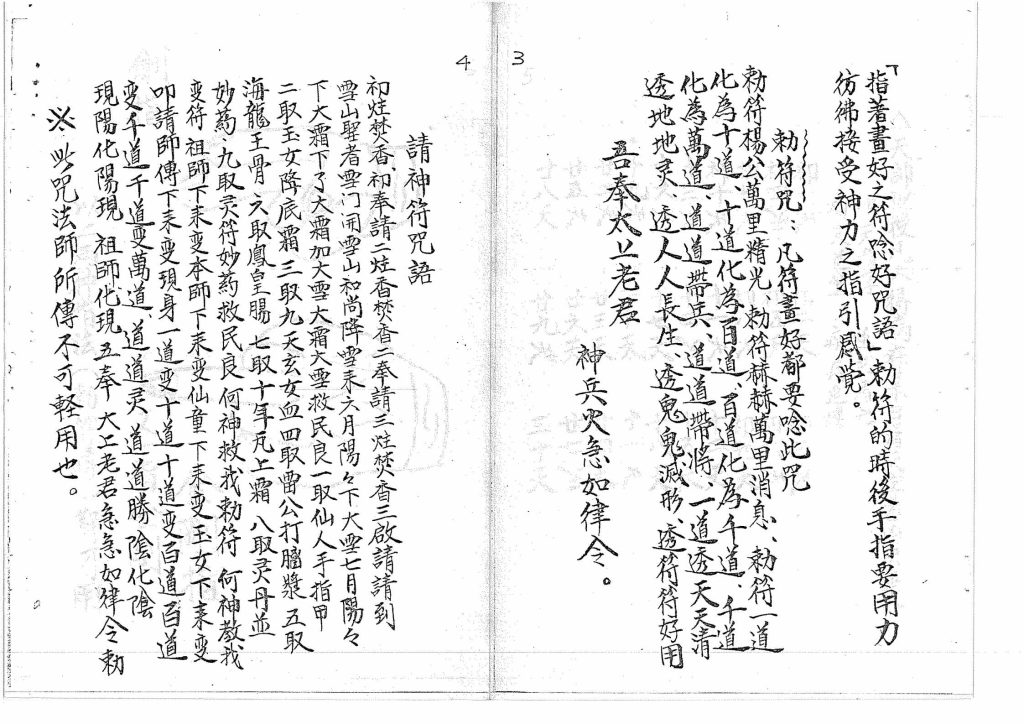 3
「指著畫好之符唸好咒語」勅符的時後手指要用力
彷彿接受神力之指引感覺。
勅符咒：凡符畫好都要唸此咒
勅符楊公萬里精光、勅符赫赫萬里消息、勅符一道
化為十道、十道化為百道、百道化為千道、千道
化為萬道、道道帶兵、道道帶將、一道透天天清
透地地灵、透人人長生、透鬼鬼滅形、透符符好用
吾奉太上老君
神兵火急如律令。
4
請神符咒語
初炷焚香、初奉請二炷香焚香二奉請三炷焚香三啟請請到
雪山聖者雪门開雪山和尚降雪来六月陽々下大雪七月陽々
下大霜下了大霜加大雪大霜大雪救民良一取仙人手指甲
二取玉女降底霜三取九天玄女血四取雷公打腦漿五取
海龍王骨六取鳳皇腸七取十年瓦上霜八取灵丹並
妙药、九取灵符妙药救民良何神救我勅符何神教我
变符祖師下来变本師下来变仙童下来变玉女下来变
叩請師傅下来变現身一道变十道十道变百道百道
变千道千道变萬道、道道灵、道道勝陰化陰
現陽化陽現祖師化現五奉大上老君急急如律令勅
※此咒法師所傳不可軽用也。